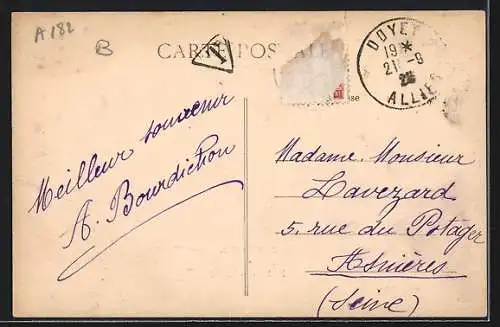 A 182
B
CARTE POSTALE
T
DOYET
19 *
21 - 9
ALLIER
Meilleur souvenir
A. Bourdichon
Madame. Monsieur
Lavezard
5. rue du Potager
Asnières
(Seine)